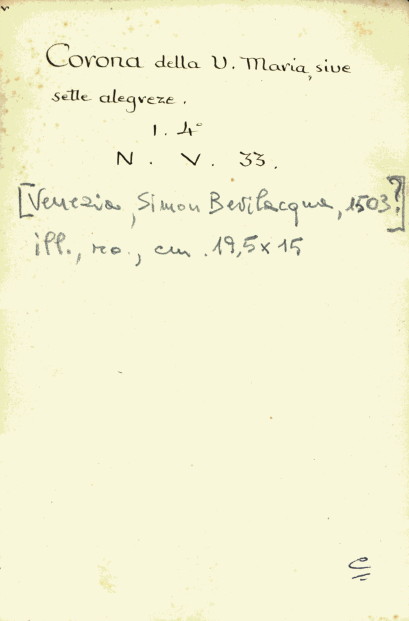 Corona della V. Maria, sive
sette alegreze.
1. 4°
N. V. 33.
[Venezia, Simon Bevilacqua, 1503?]
ill., ro., cm. 19,5 x 15
C